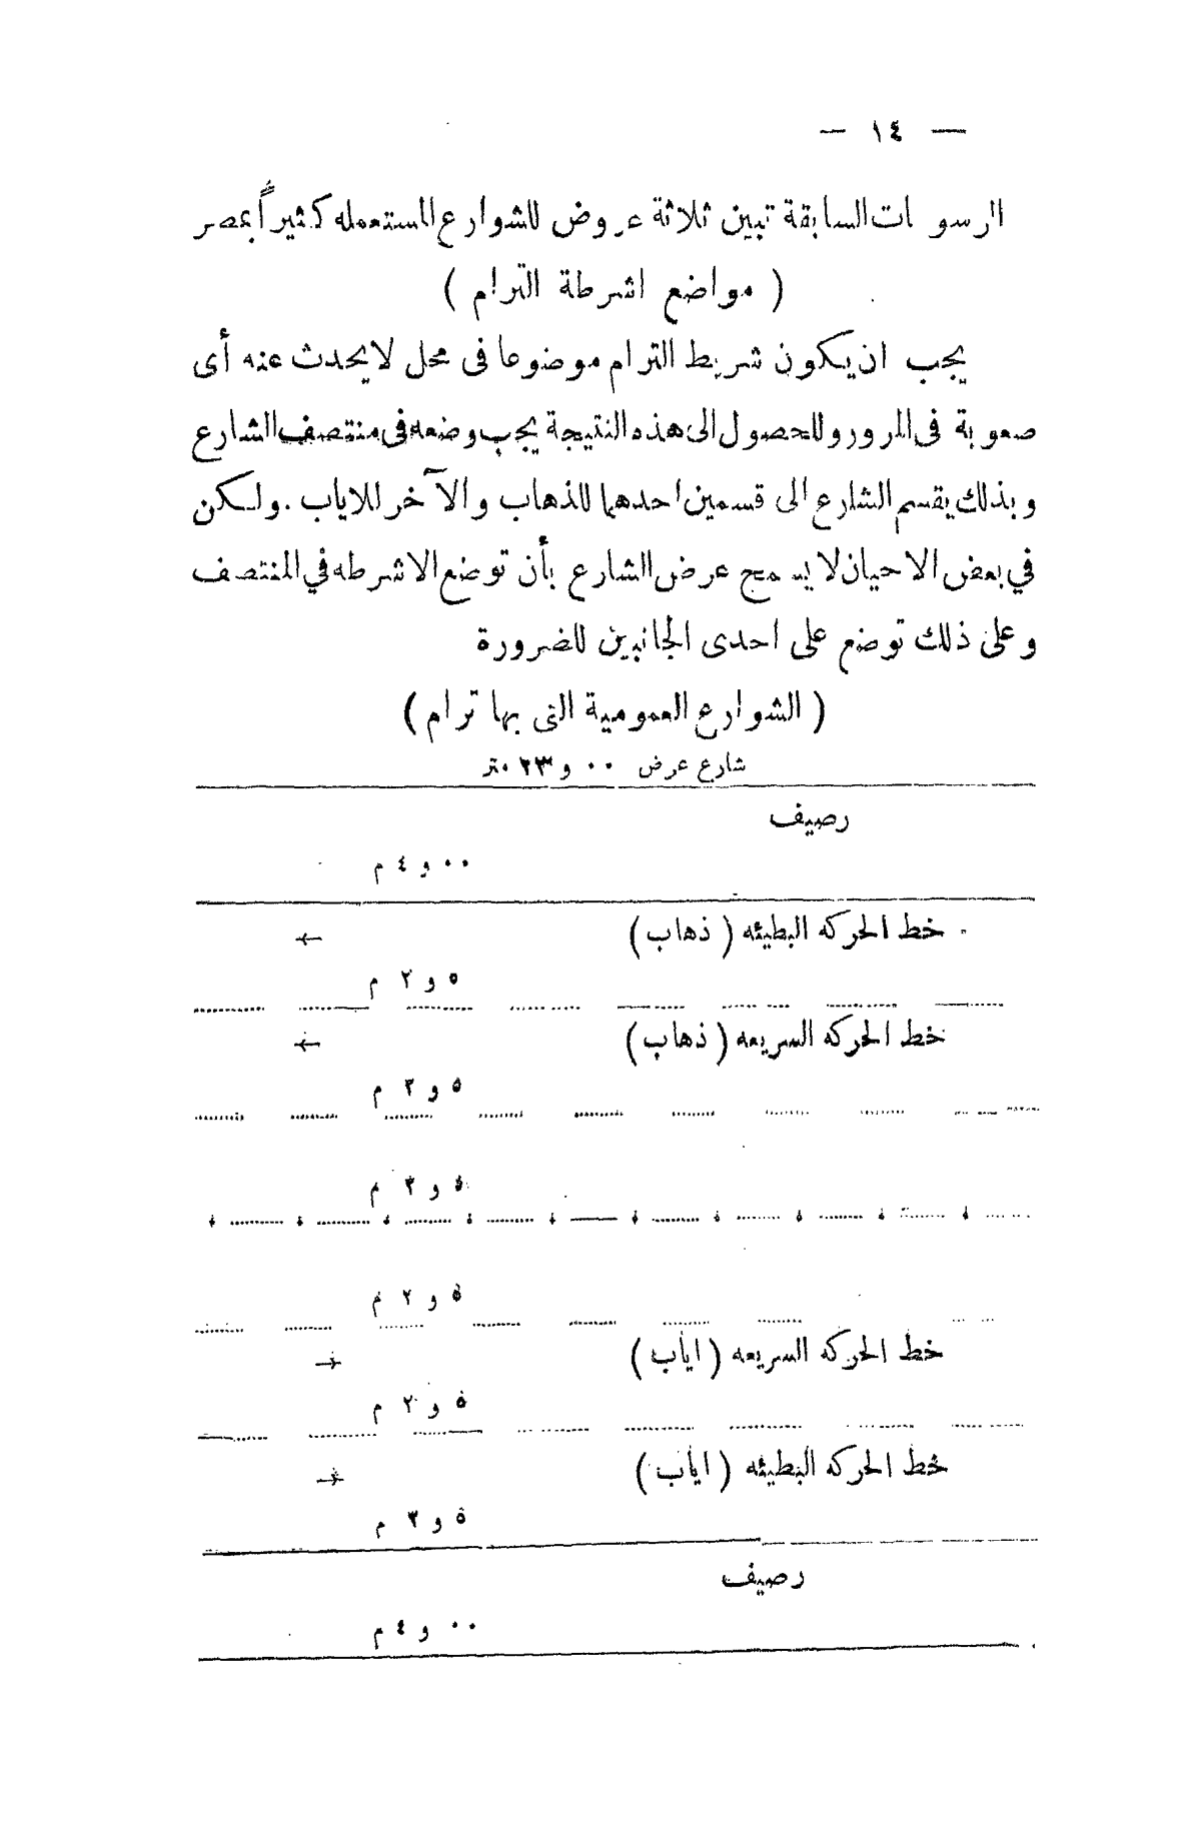 — ١٤ —
الرسو ات السابقة تبين ثلاثة عروض للشوارع المستعمله كثيراً بمصر
( مواضع اشرطة الترام )
يجب ان يكون شريط الترام موضوعا فى محل لا يحدث عنه أى
صعوبة فى المرور وللحصول الى هذه النتيجة يجب وضعه فى منتصف الشارع
وبذلك يقسم الشارع الى قسمين احدهما للذهاب والآخر للاياب . ولكن
في بعض الاحيان لا يسمح عرض الشارع بأن توضع الاشرطه في المنتصف
وعلى ذلك توضع على احدى الجانبين للضرورة
( الشوارع العمومية التى بها ترام )
شارع عرض ٠٠ و ٢٣ متر
رصيف
٠٠ و ٤ م
خط الحركه البطيئه ( ذهاب ) ←
٥ و ٢ م
خط الحركه السريعه ( ذهاب ) ←
٥ و ٢ م
٥ و ٢ م
٥ و ٢ م
خط الحركه السريعه ( اياب ) →
٥ و ٢ م
خط الحركه البطيئه ( اياب ) →
٥ و ٢ م
رصيف
٠٠ و ٤ م